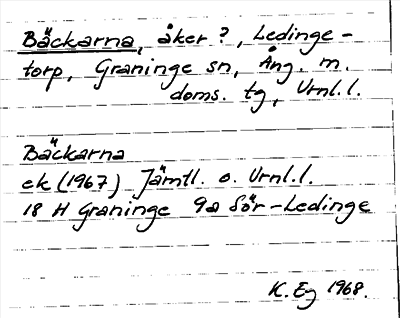 Bäckarna, åker?, Ledinge-
torp, Graninge sn, Ång. m.
doms. tg, Vrnl.l.
Bäckarna
ek (1967) Jämtl. o. Vrnl.l.
18 H Graninge 9a Sör-Ledinge
K. Eg 1968.